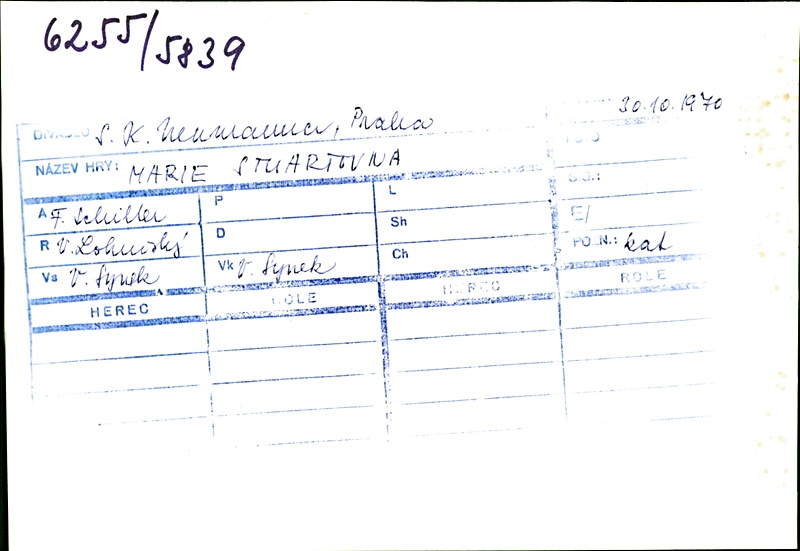 6255/5839
30.10.1970
DIVADLO S. K. Neumanna, Praha
NÁZEV HRY: MARIE STUARTOVNA
A F. Schiller P L S.G.:
R V. Lohniský D Sh
Vs V. Synek Vk V. Synek Ch POZN.: kat
HEREC ROLE HEREC ROLE